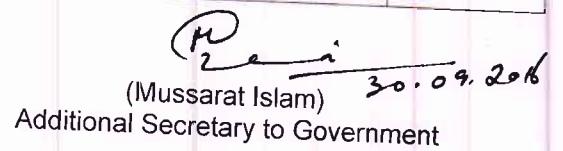 30.09.2016
(Mussarat Islam)
Additional Secretary to Government